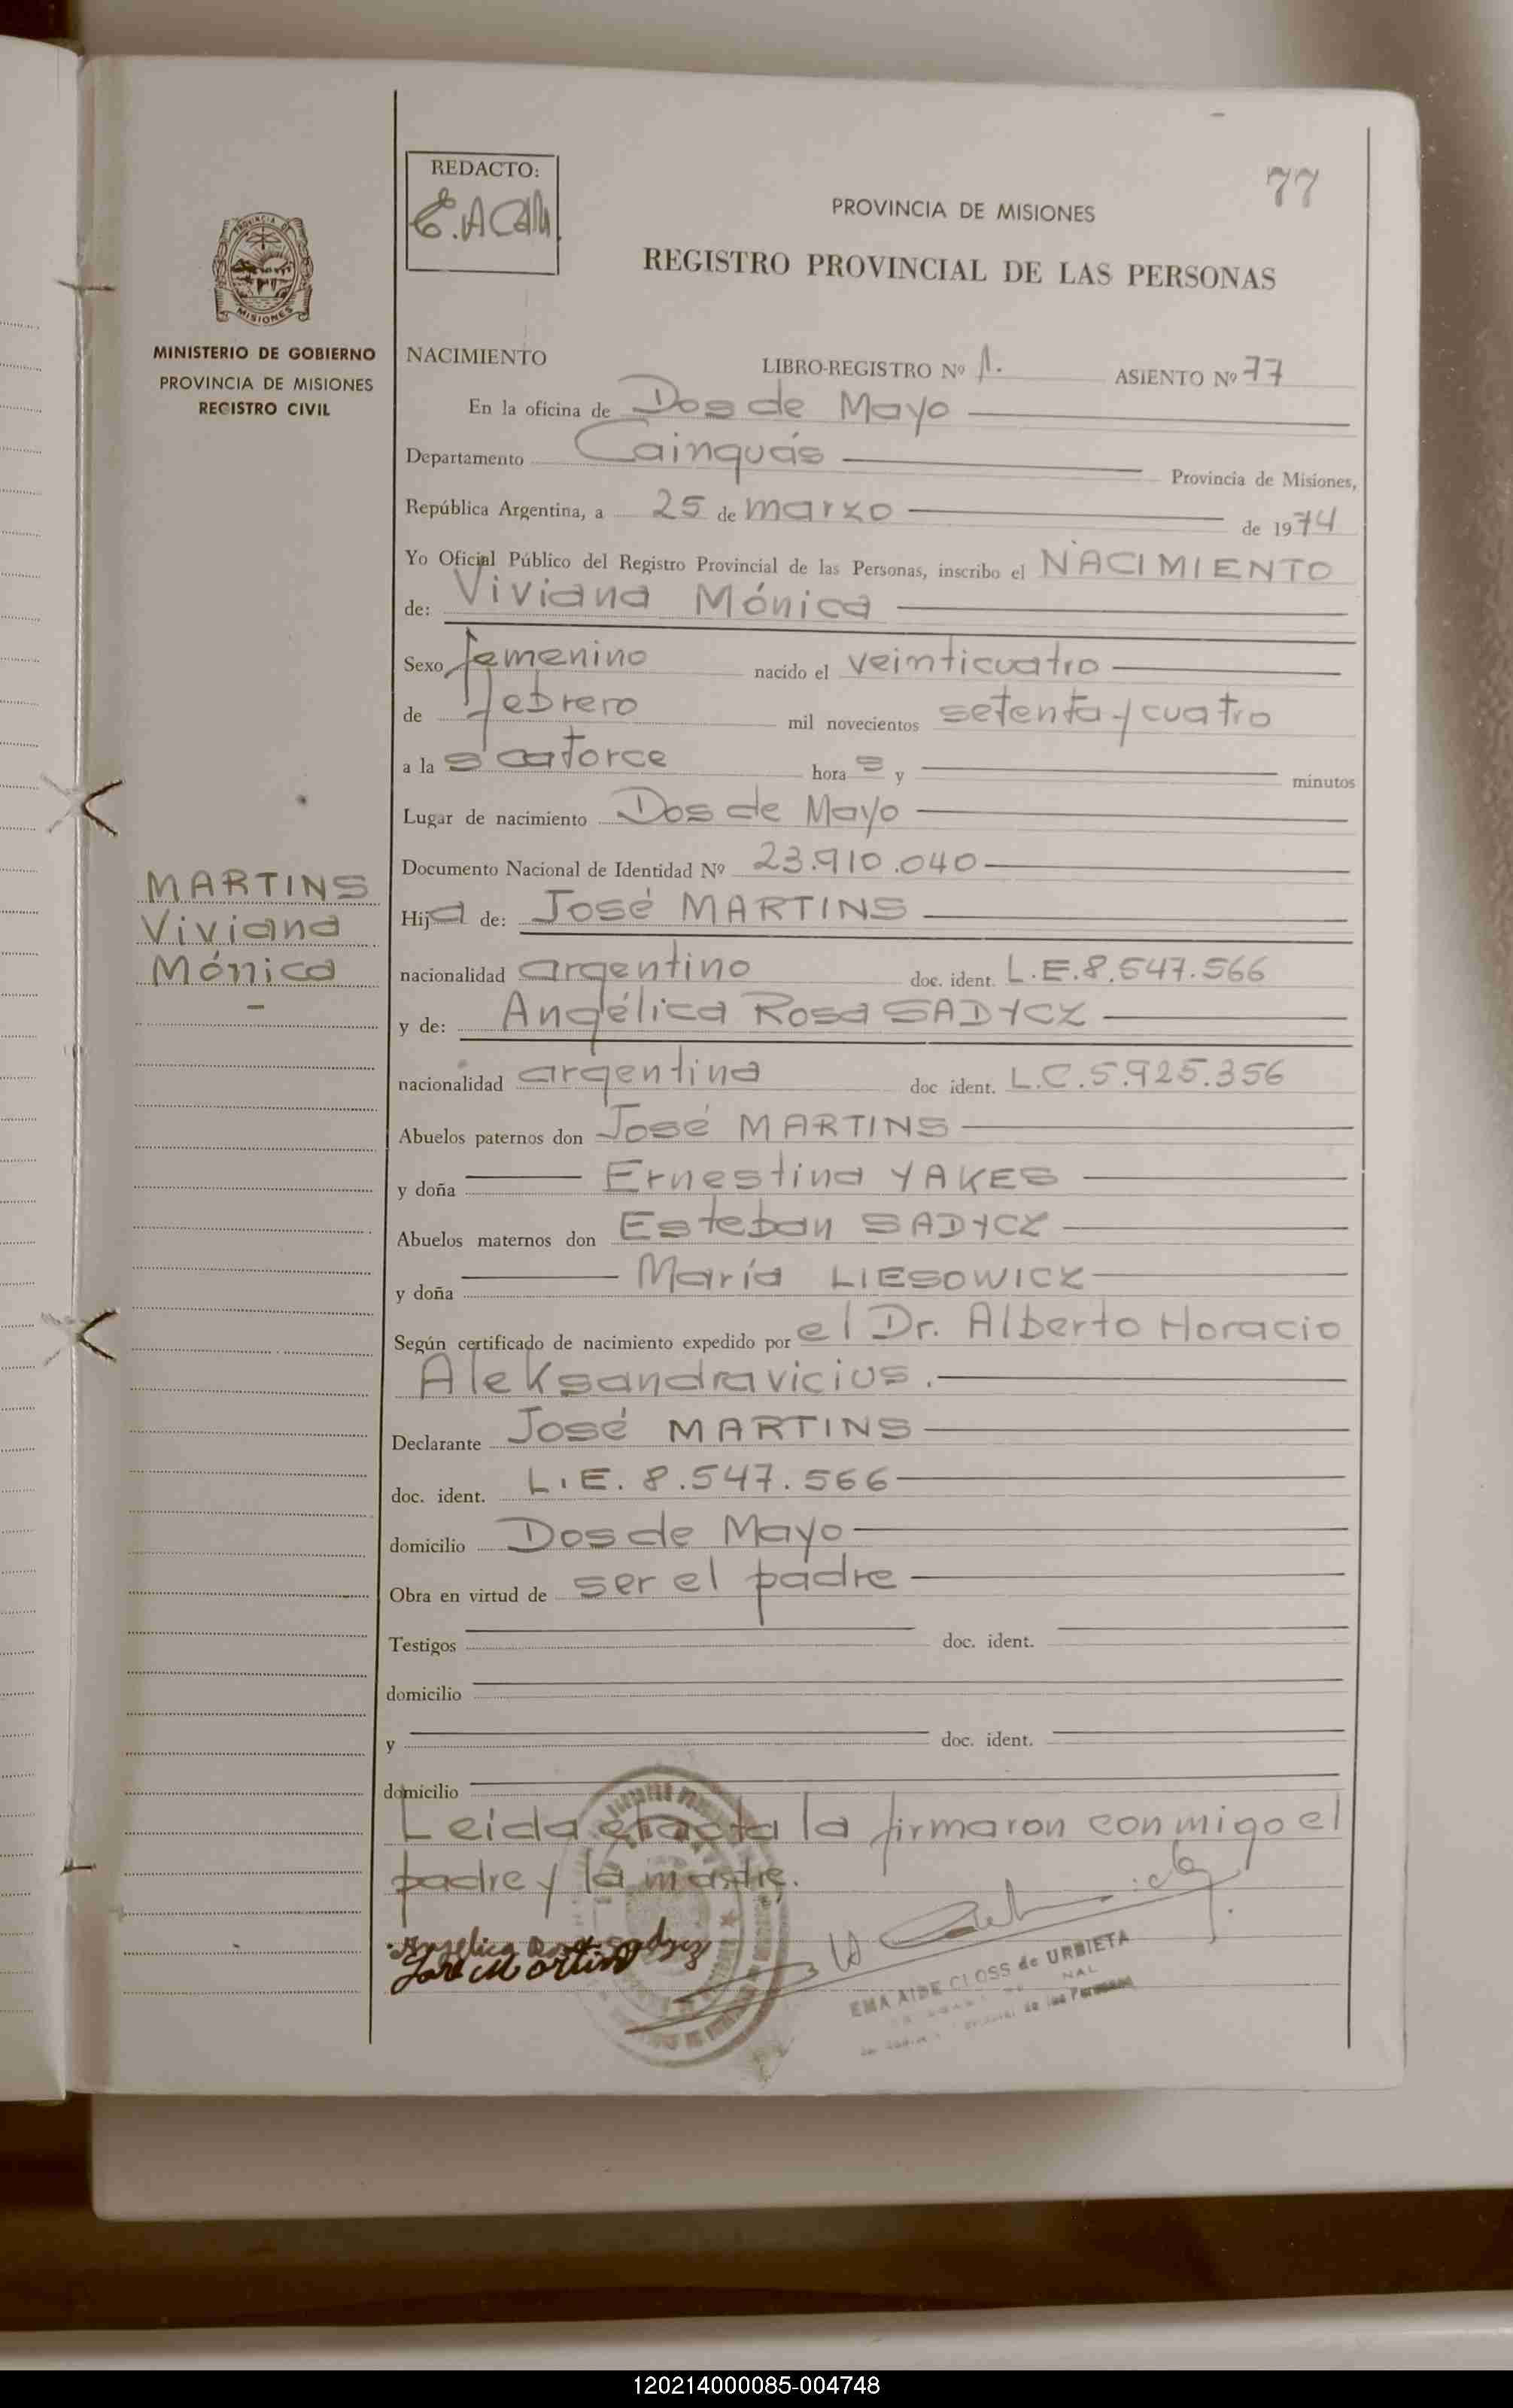 77
REDACTO:
E.ACAM
PROVINCIA DE MISIONES
REGISTRO PROVINCIAL DE LAS PERSONAS
PROVINCIA DE
MISIONES
MINISTERIO DE GOBIERNO
PROVINCIA DE MISIONES
REGISTRO CIVIL
NACIMIENTO LIBRO-REGISTRO Nº 1. ASIENTO Nº 77
En la oficina de Dos de Mayo
Departamento Cainguás Provincia de Misiones,
República Argentina, a 25 de marzo de 1974
Yo Oficial Público del Registro Provincial de las Personas, inscribo el NACIMIENTO
de: Viviana Mónica
Sexo femenino nacido el veinticuatro
de febrero mil novecientos setenta y cuatro
a la s catorce hora s y minutos
Lugar de nacimiento Dos de Mayo
Documento Nacional de Identidad Nº 23.910.040
MARTINS
Viviana
Mónica
Hija de: José MARTINS
nacionalidad argentino doc. ident. L.E.8.547.566
y de: Angélica Rosa SADYCZ
nacionalidad argentina doc ident. L.C.5.925.356
Abuelos paternos don José MARTINS
y doña Ernestina YAKES
Abuelos maternos don Esteban SADYCZ
y doña María LIESOWICZ
Según certificado de nacimiento expedido por el Dr. Alberto Horacio
Aleksandravicius.
Declarante José MARTINS
doc. ident. L.E. 8.547.566
domicilio Dos de Mayo
Obra en virtud de ser el padre
Testigos doc. ident.
domicilio
y doc. ident.
domicilio
Leída el acta la firmaron conmigo el
padre y la madre.
Angelica Rosa Sadycz
José Martins
EMA AIDE CLOSS de URBIETA
de las Personas
120214000085-004748